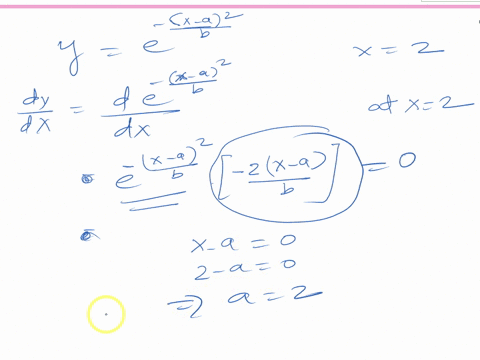 y = e^{-(x-a)^2/b}
x = 2
dy/dx = d e^{-(x-a)^2/b}/dx
at x=2
• e^{-(x-a)^2/b} [-2(x-a)/b] = 0
x-a = 0
2-a = 0
⇒ a = 2